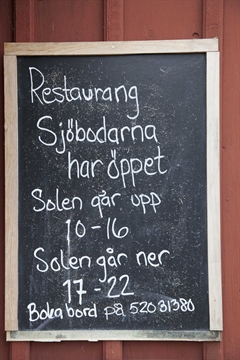 Restaurang
Sjöbodarna
har öppet
Solen går upp
10-16
Solen går ner
17-22
Boka bord på 52031380